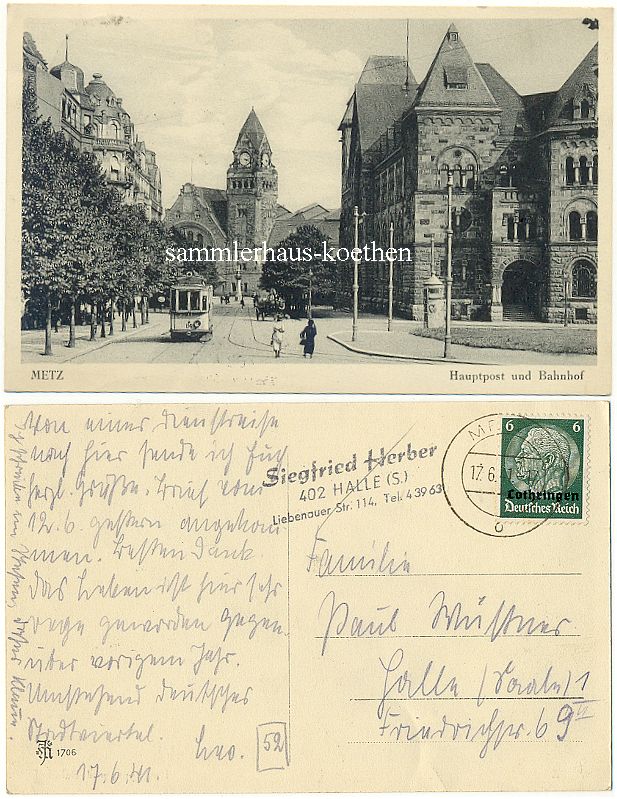 sammlerhaus-koethen
METZ
Hauptpost und Bahnhof
Von einer Dienstreise
nach hier sende ich Euch
herzl. Grüße. Brief vom
12.6. gestern angekom
men. Besten Dank.
Das Leben ist hier sehr
rege geworden gegen
über vorigem Jahr.
Umstehend deutsches
Stadtviertel.
17.6.41.
1706
52
Siegfried Herber
402 HALLE (S.)
Liebenauer Str. 114, Tel. 4 39 63
17.6.
6 6
Lothringen
Deutsches Reich
Familie
Paul Wüstner
Halle (Saale) 1
Friedrichstr. 69 II